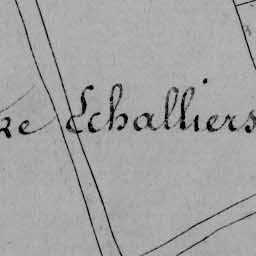 ke Echalliers